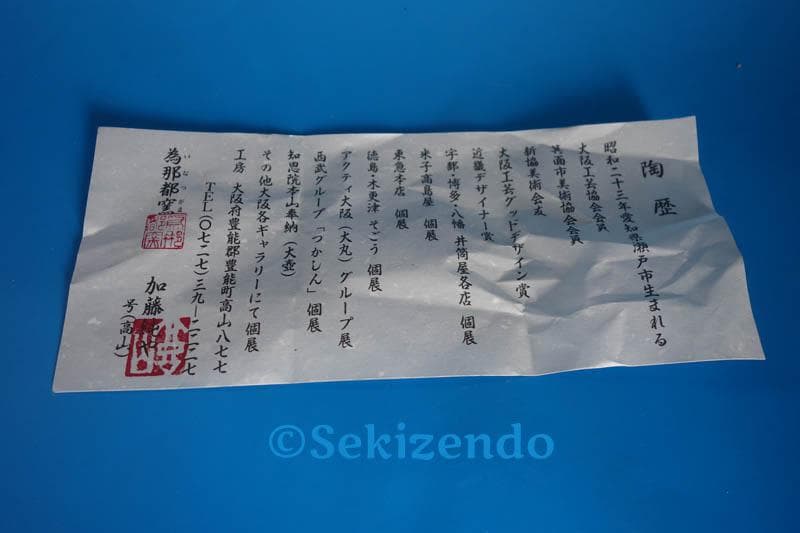 陶歴
昭和二十三年愛知県瀬戸市生まれる
大阪工芸協会会員
箕面市美術協会会員
新協美術会会友
大阪工芸グッドデザイン賞
近畿デザイナー賞
宇部・博多・八幡 井筒屋各店 個展
米子高島屋 個展
東急本店 個展
徳島・木更津 そごう 個展
アクティ大阪(大丸)グループ展
西武グループ「つかしん」個展
知恩院本山奉納(大壺)
その他大阪各ギャラリーにて個展
工房 大阪府豊能郡豊能町高山八七七
TEL(〇七二七)三九
為那都窯
いなつがま
加藤
号(高山)
©Sekizendo